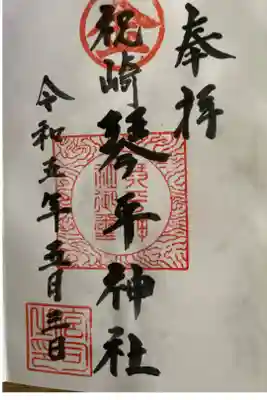 奉拝
祝崎琴平神社
令和五年五月三日